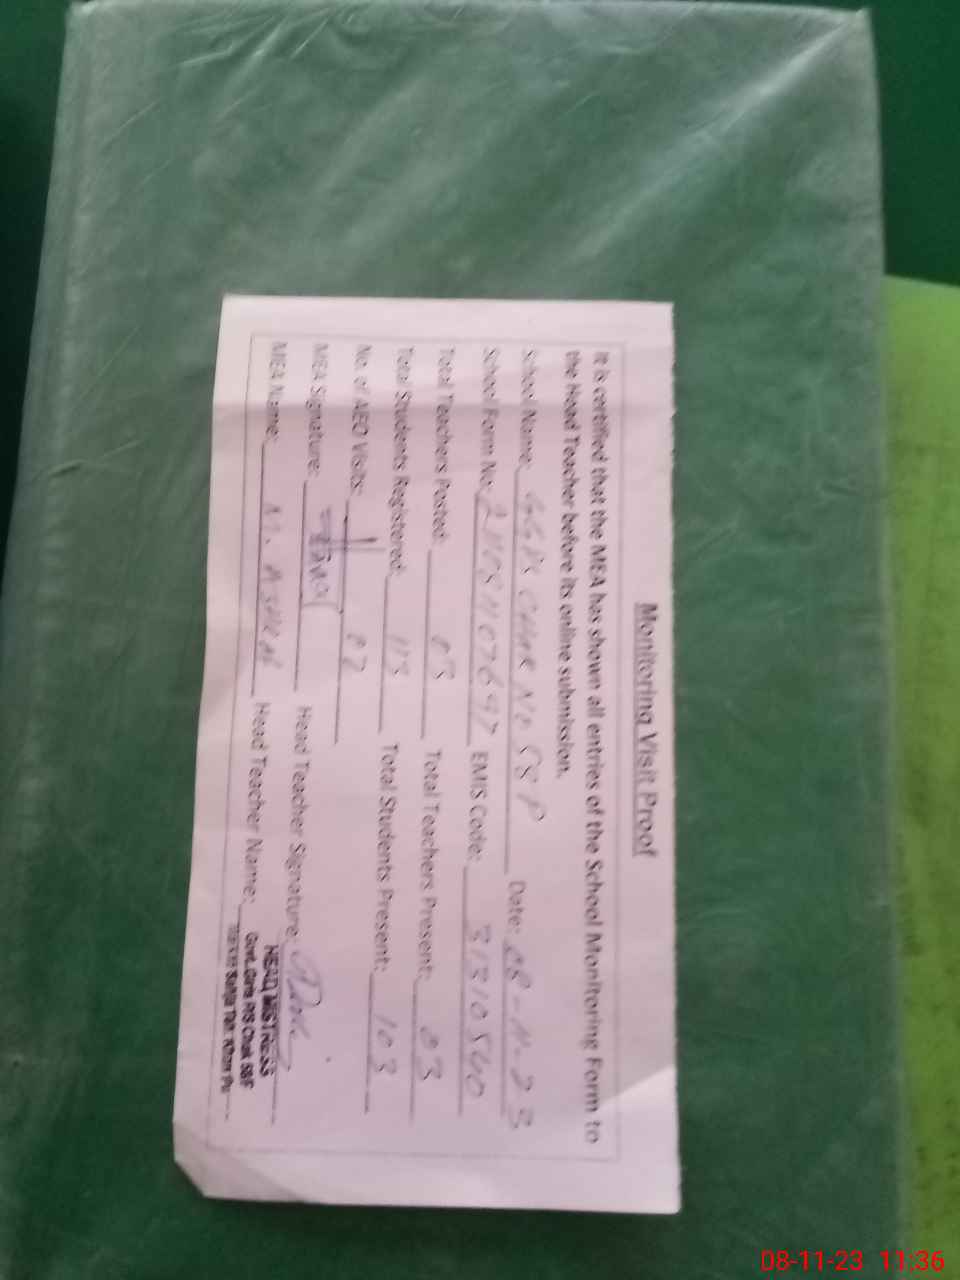 Monitoring Visit Proof
It is certified that the MEA has shown all entries of the School Monitoring Form to
the Head Teacher before its online submission.
School Name: GGPS CHAK NO 58 P Date: 08-11-23
School Form No: EMIS Code: 31310540
Total Teachers Posted: 03 Total Teachers Present: 03
Total Students Registered: 113 Total Students Present: 103
No. of AEO Visits: 02
MEA Signature: Head Teacher Signature:
MEA Name: M. ASHRAF Head Teacher Name:
HEAD MISTRESS
Govt. Girls P/S Chak 58P
Teh. Khan Pu
08-11-23 11:36